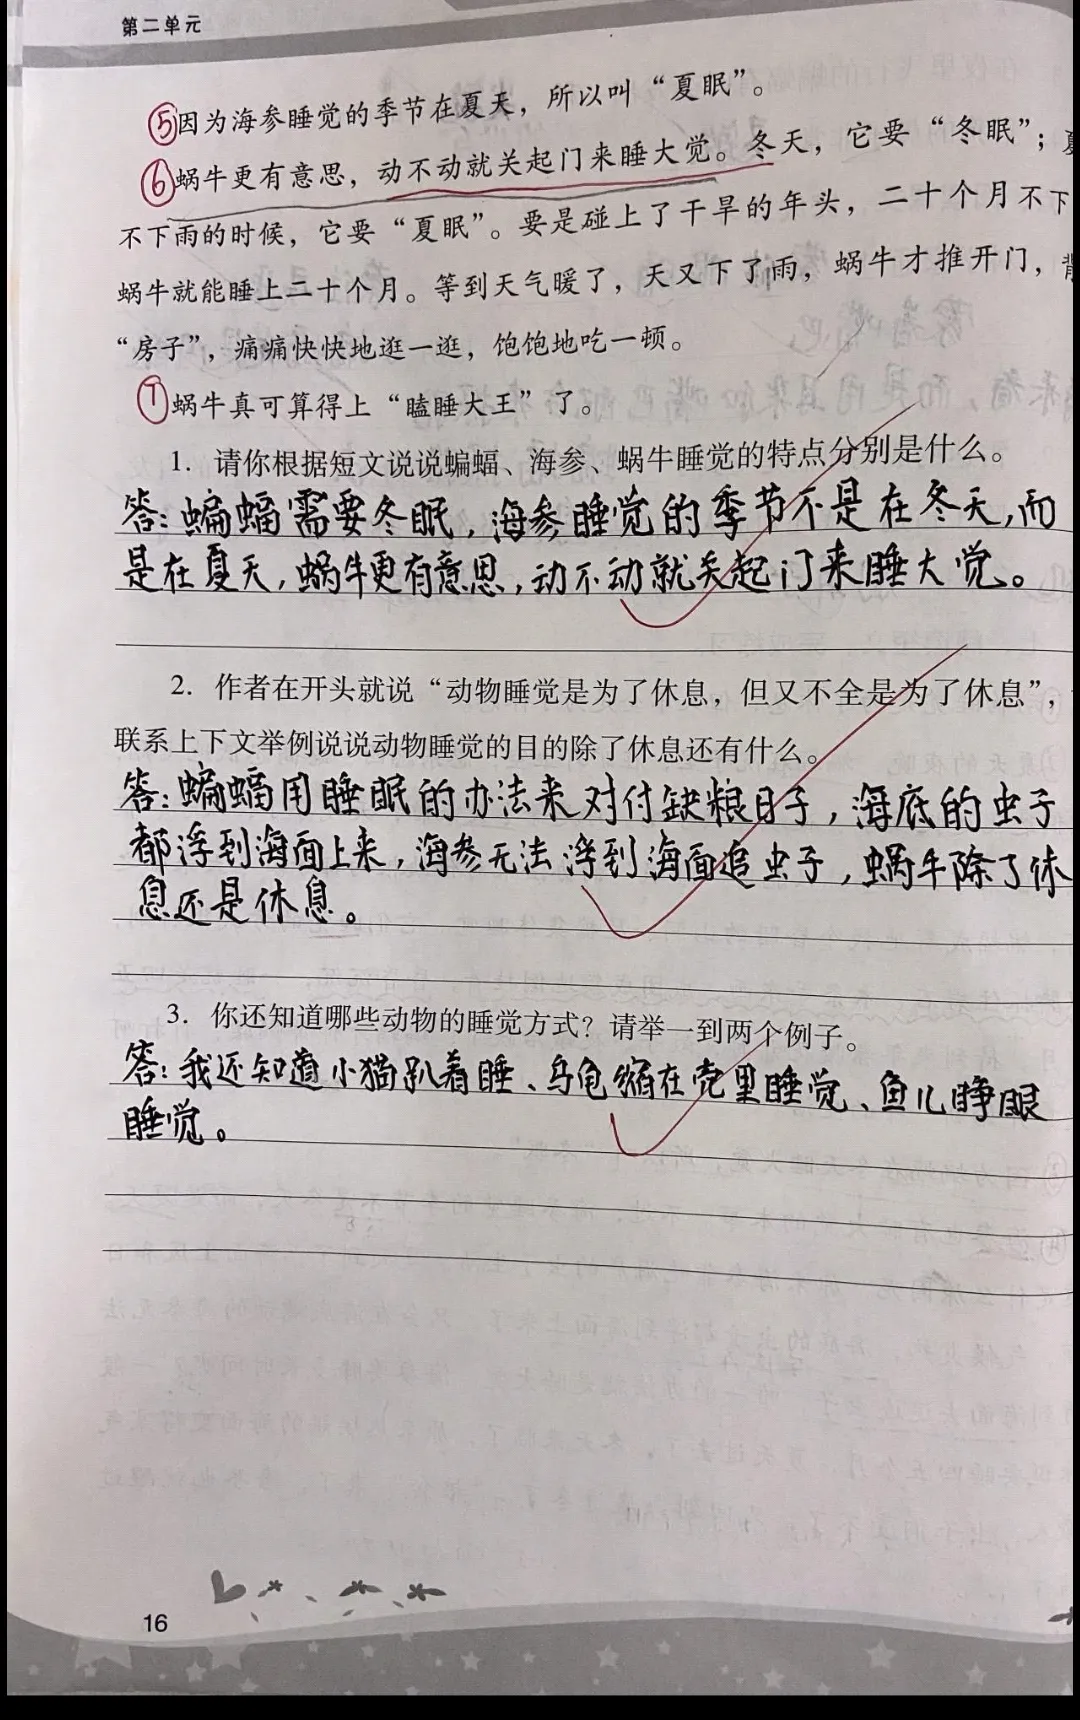 第二单元
⑤因为海参睡觉的季节在夏天，所以叫“夏眠”。
⑥蜗牛更有意思，动不动就关起门来睡大觉。冬天，它要“冬眠”；夏
不下雨的时候，它要“夏眠”。要是碰上了干旱的年头，二十个月不下
蜗牛就能睡上二十个月。等到天气暖了，天又下了雨，蜗牛才推开门，背
“房子”，痛痛快快地逛一逛，饱饱地吃一顿。
⑦蜗牛真可算得上“瞌睡大王”了。
1. 请你根据短文说说蝙蝠、海参、蜗牛睡觉的特点分别是什么。
答：蝙蝠需要冬眠，海参睡觉的季节不是在冬天，而
是在夏天，蜗牛更有意思，动不动就关起门来睡大觉。
2. 作者在开头就说“动物睡觉是为了休息，但又不全是为了休息”，
联系上下文举例说说动物睡觉的目的除了休息还有什么。
答：蝙蝠用睡眠的办法来对付缺粮日子，海底的虫子
都浮到海面上来，海参无法浮到海面追虫子，蜗牛除了休
息还是休息。
3. 你还知道哪些动物的睡觉方式？请举一到两个例子。
答：我还知道小猫趴着睡、乌龟缩在壳里睡觉、鱼儿睁眼
睡觉。
16